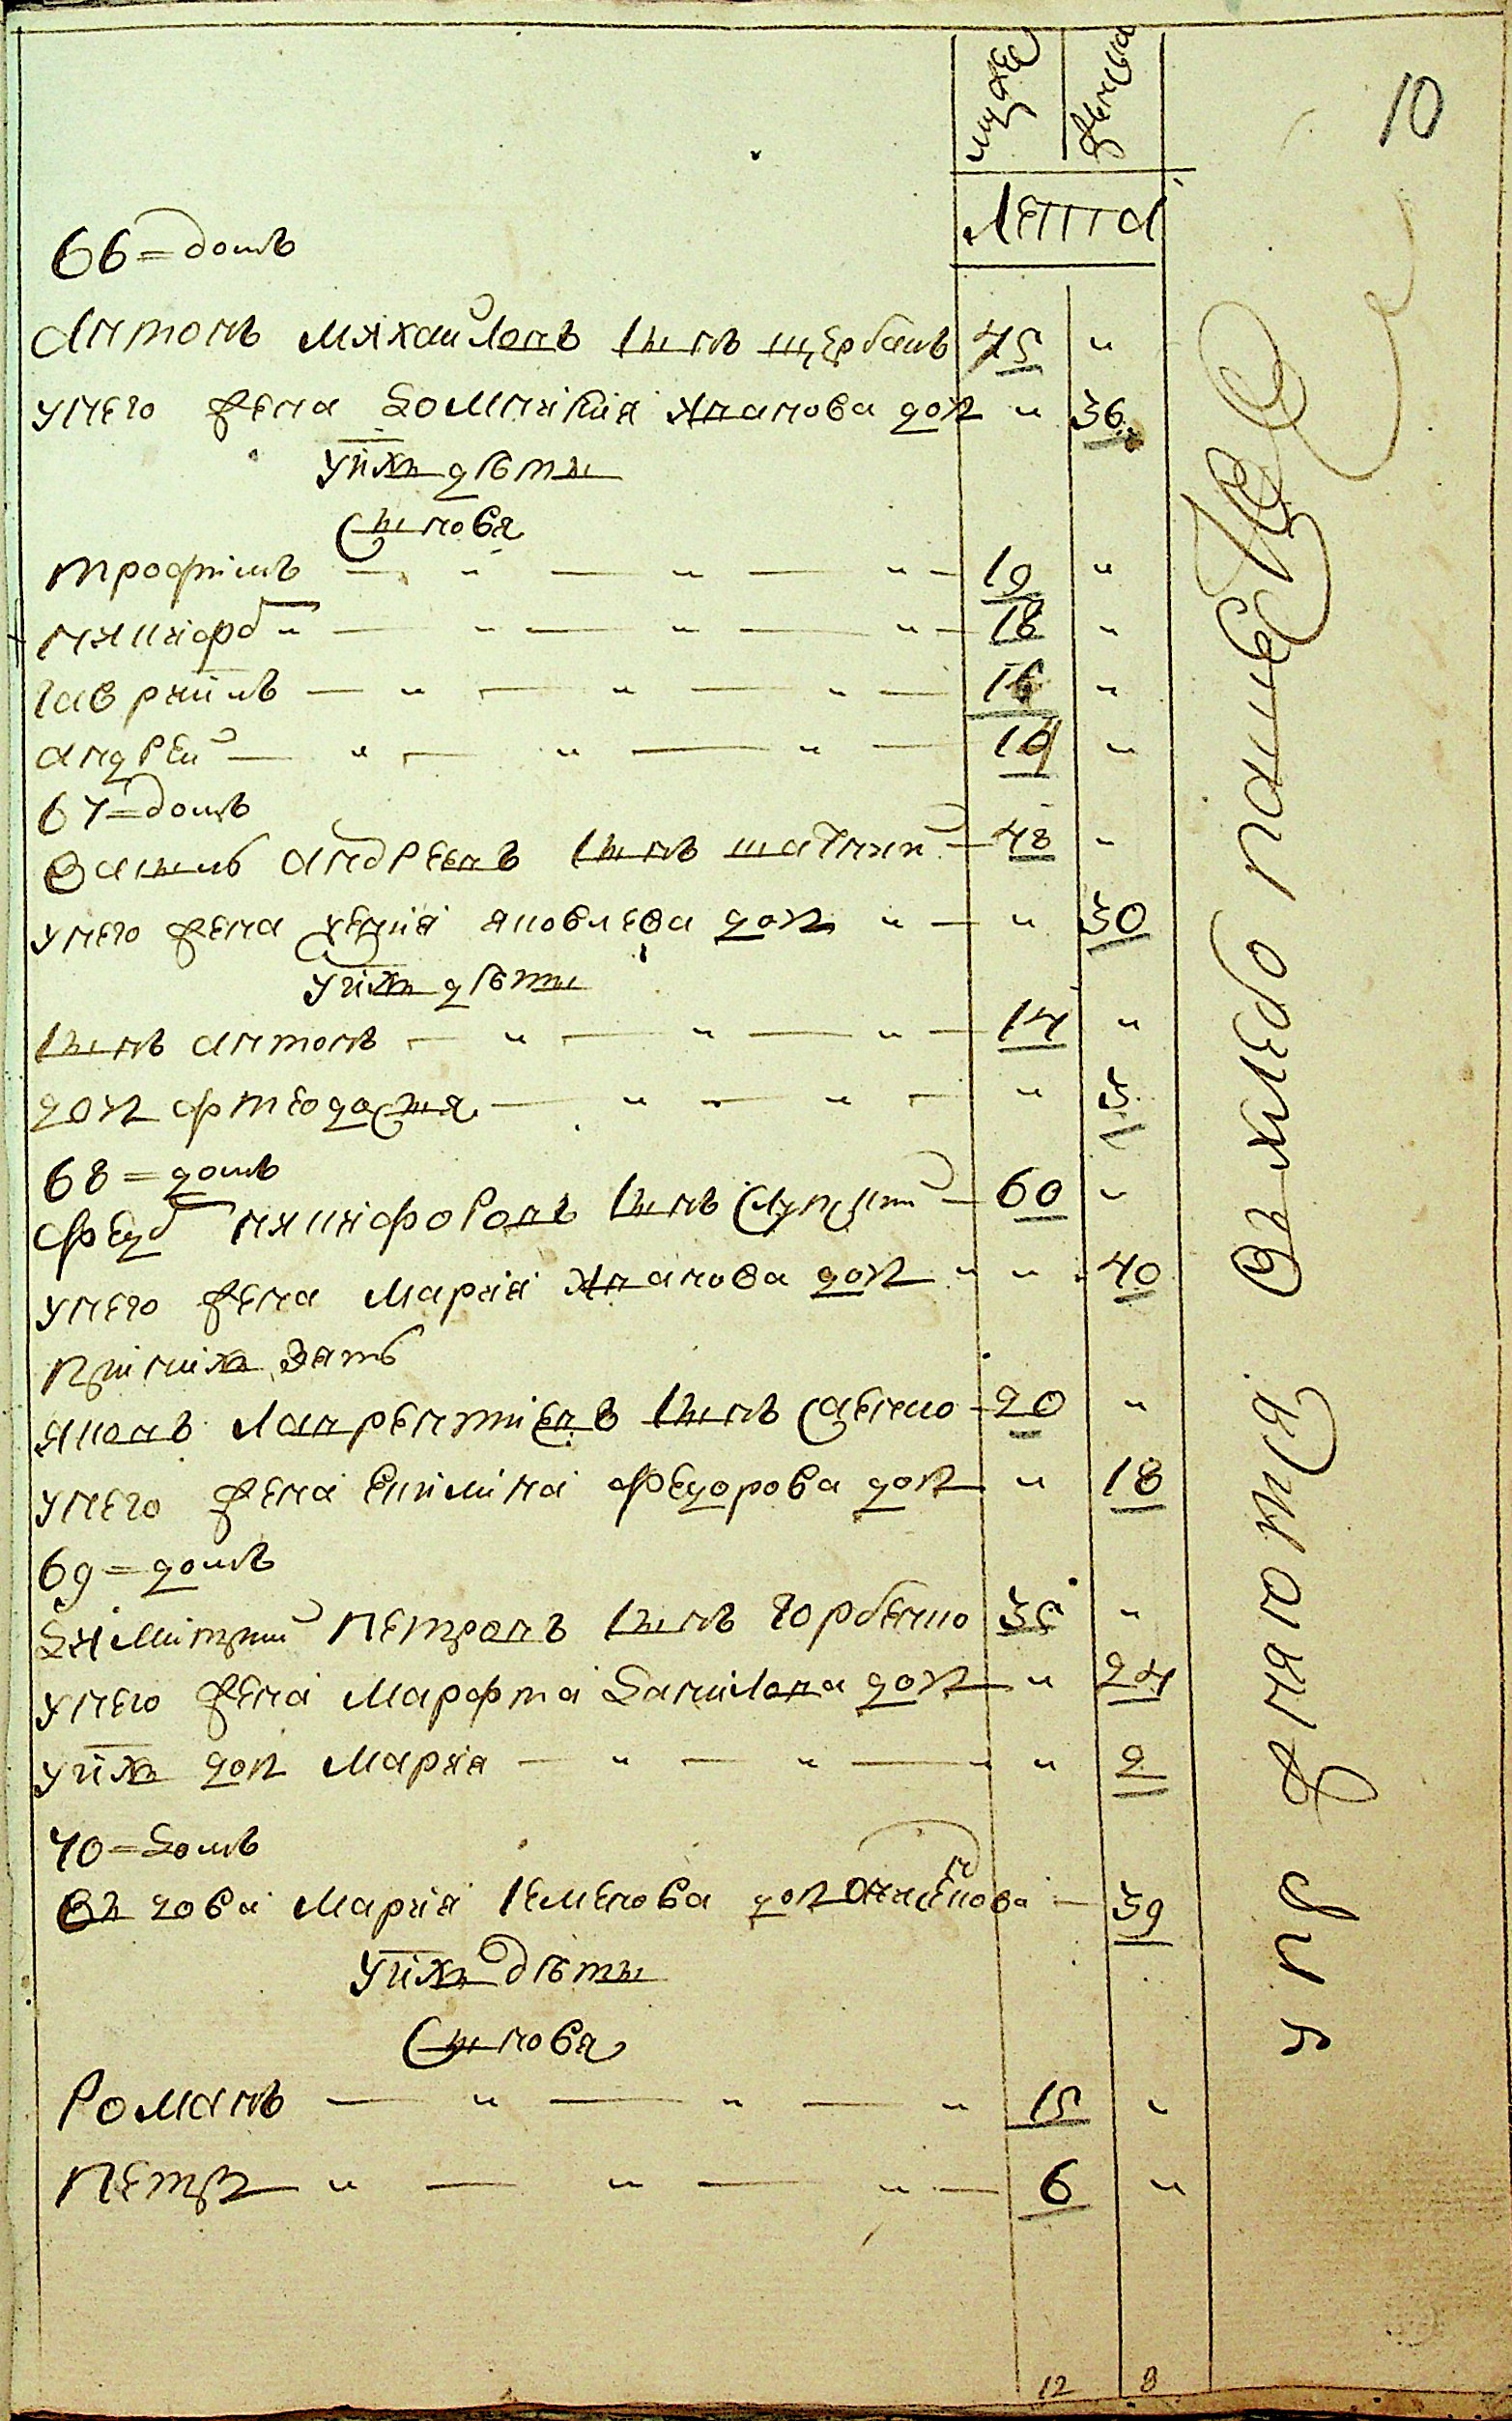 10
мужска женска
Лета
66 = домъ
Антонъ михайловъ сынъ щербакъ 45 "
унего жена домникия иванова доч " 36
унихъ дѣти
сынове
трофимъ — " — " — " — 19 "
никифоръ " — " — " — " — 18 "
гавриилъ — " — " — " — 16 "
андрей — " — " — " — 14 "
67 = домъ
Василь андреевъ сынъ — 48 "
унего жена яковлева доч " — " 30
унихъ дѣти
сынъ антонъ — " — " — " — 14 "
доч феодосия — " — " — " 3
68 = домъ
федоръ никифоровъ сынъ — 60 "
унего жена мария иванова доч " " 40
принихъ зять
яковъ лаврентиевъ сынъ савенко — 20 "
унего жена екимина федорова доч " 18
69 = домъ
димитрий петровъ сынъ горбенко 35 "
унего жена марфа данилова доч — " 24
унихъ доч мария — " — " — " 2
70 = домъ
вдова мария семенова доч — 39
унихъ дѣти
сынове
романъ — " — " — " 15 "
петръ " — " — " — 6 "
12 8
въ хлебо пашестве упражняются